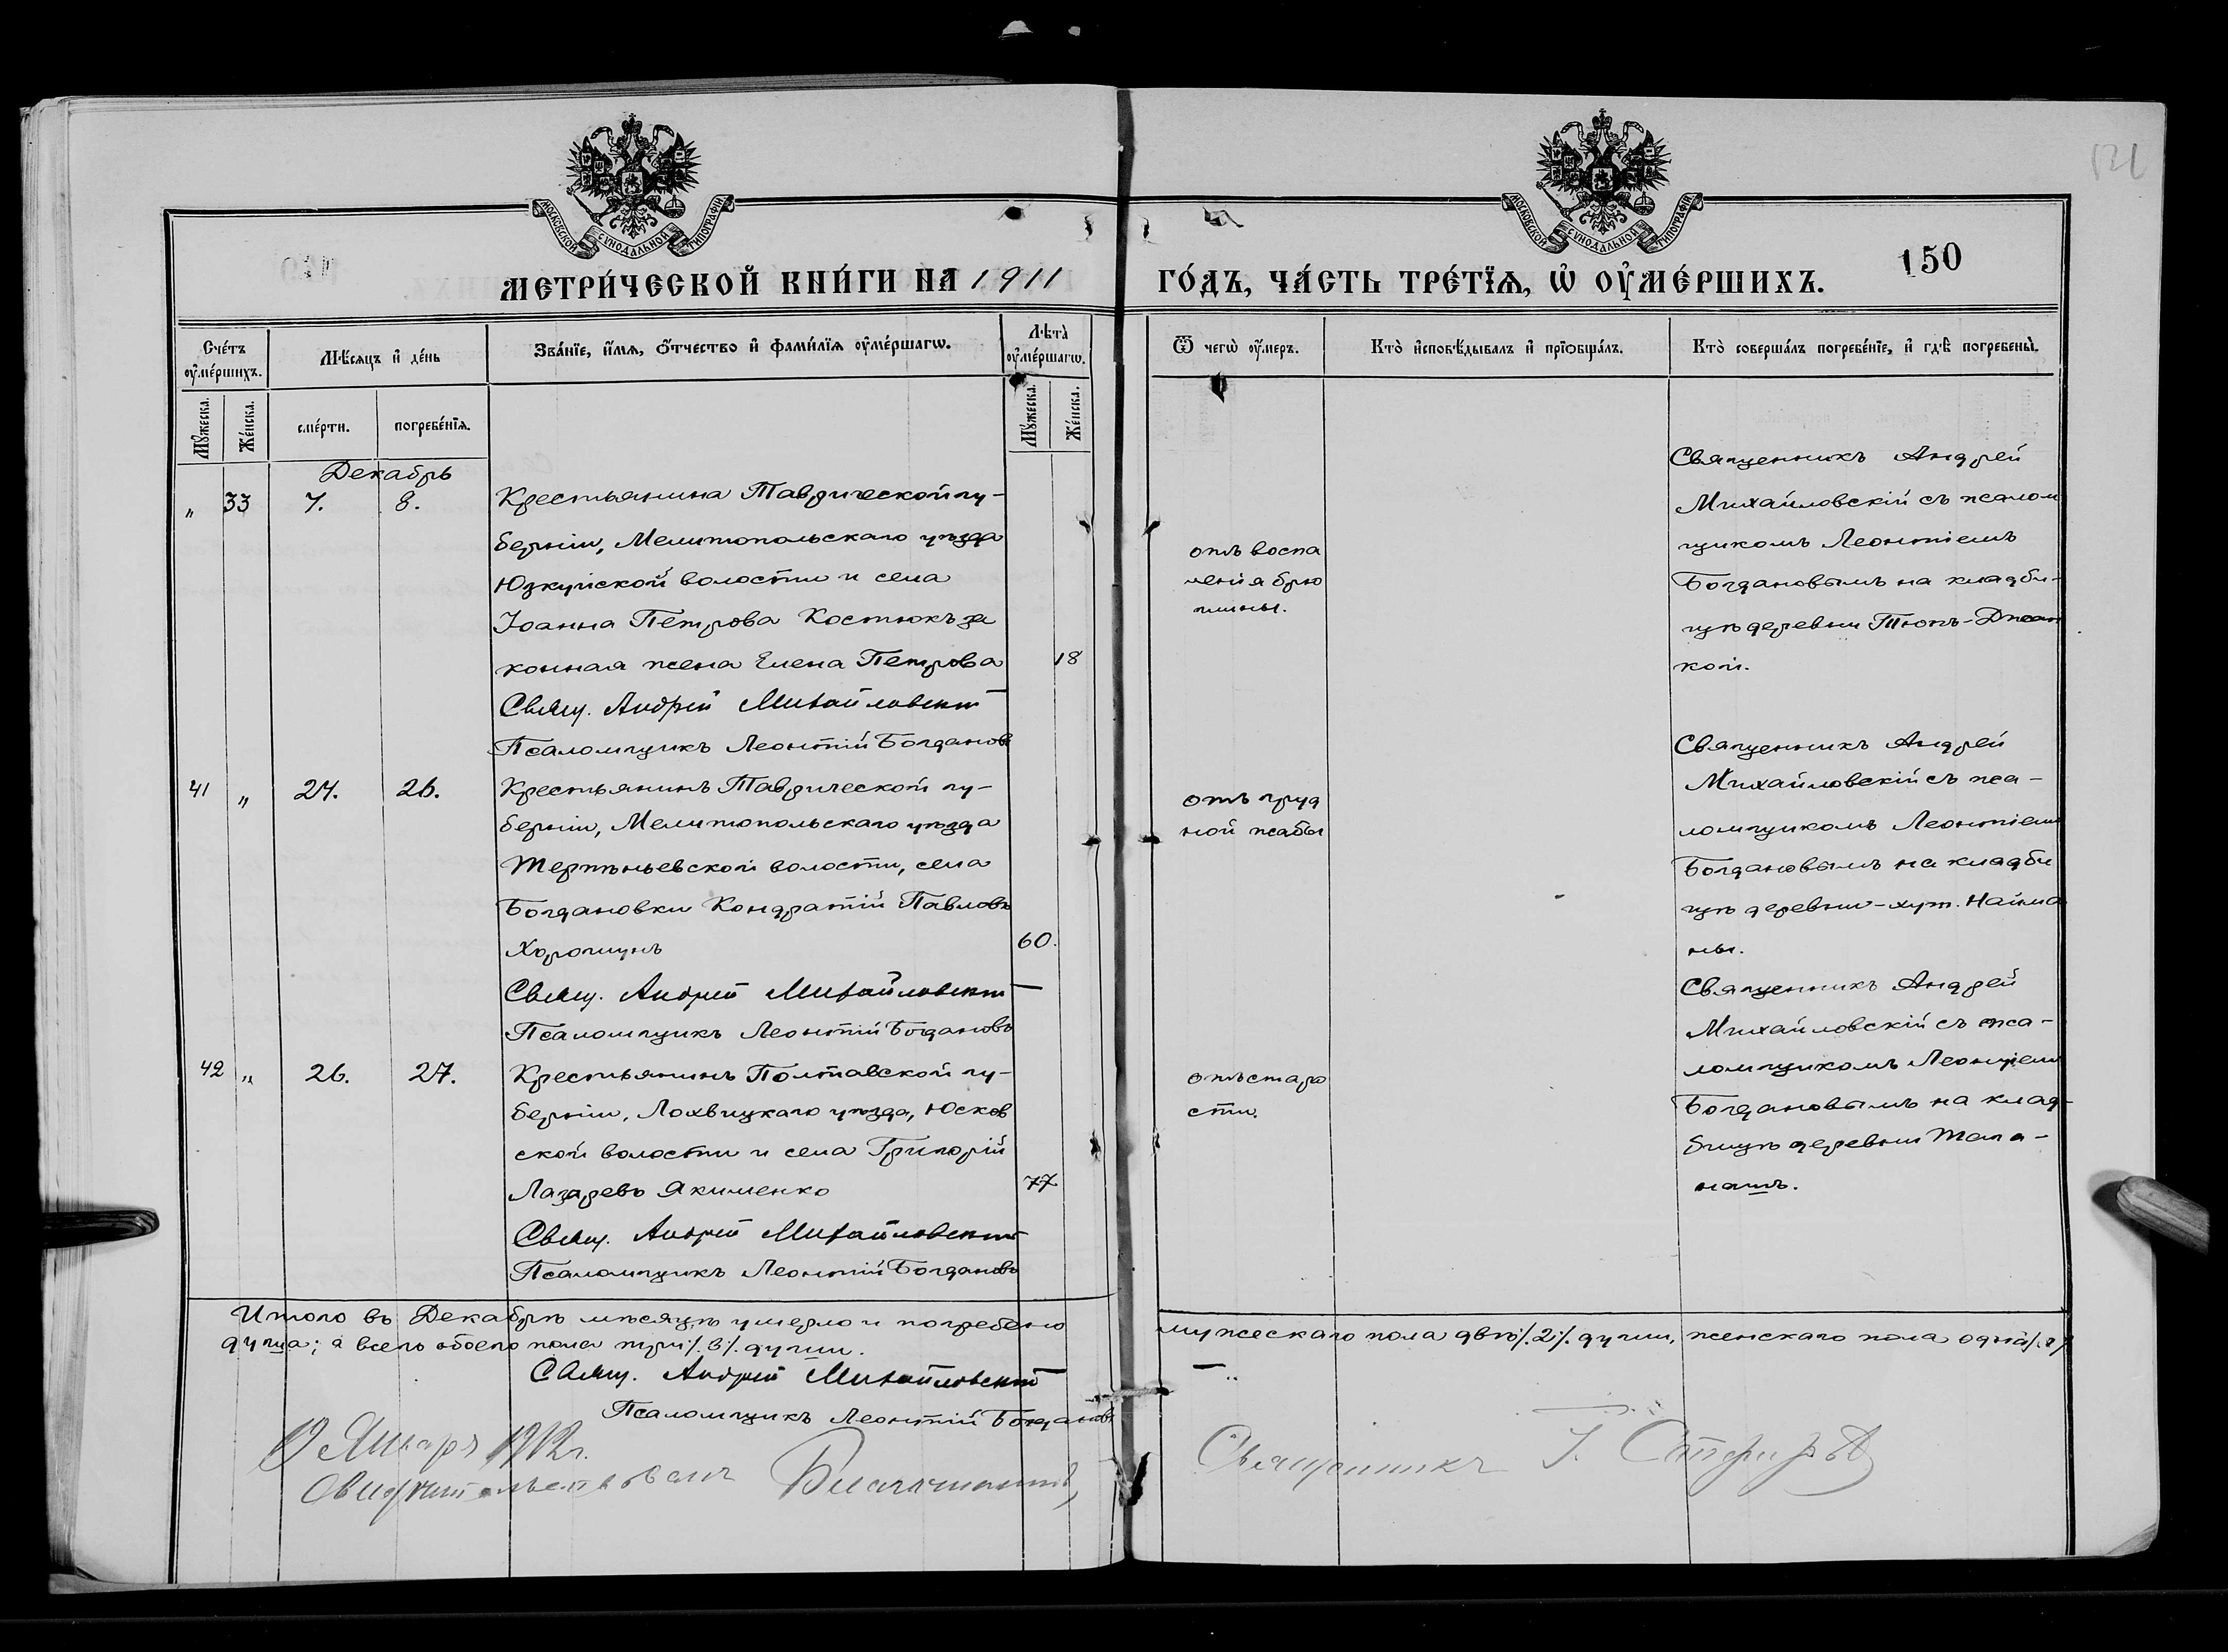 МОСКОВСКОЙ СУНОДАЛЬНОЙ ТИПОГРАФІИ
МОСКОВСКОЙ СУНОДАЛЬНОЙ ТИПОГРАФІИ
МЕТРИ́ЧЕСКОЙ КНИ́ГИ НА 1911
ГО́ДЪ, ЧА́СТЬ ТРЕ́ТЇѦ, Ѡ҆ ОУ҆МЕ́РШИХЪ.
150
Сче́тъ оу҆ме́ршихъ.
Мѣ́сяцъ и҆ де́нь
Зва́нїе, и҆́мѧ, ѻ҆́тчество и҆ фами́лїѧ оу҆ме́ршагѡ.
Лѣ́та оу҆ме́ршагѡ.
Ѿ чегѡ̀ оу҆́меръ.
Кто̀ и҆сповѣ́дывалъ и҆ прїѻбща́лъ.
Кто̀ соверша́лъ погребе́нїе, и҆ гдѣ̀ погребены̀.
Мꙋ́жеска.
Же́нска.
сме́рти.
погребе́нїѧ.
Мꙋ́жеска.
Же́нска.
Декабрь
" 33 7. 8.
Крестьянина Таврической гу-
берніи, Мелитопольскаго уѣзда
Юзкуйской волости и села
Іоанна Петрова Костюкъ за
конная жена Елена Петрова
18
Свящ. Андрей Михайловскій
Псаломщикъ Леонтій Богдановъ
отъ воспа
ленія брю
шины.
Священникъ Андрей
Михайловскій съ псалом
щикомъ Леонтіемъ
Богдановымъ на кладби-
щѣ деревни Тюпъ-Джан
кой.
41 " 24. 26.
Крестьянинъ Таврической гу-
берніи, Мелитопольскаго уѣзда
Терпѣньевской волости, села
Богдановки Кондратій Павловъ
Хорошунъ
60.
Свящ. Андрей Михайловскій
Псаломщикъ Леонтій Богдановъ
отъ груд
ной жабы
Священникъ Андрей
Михайловскій съ пса-
ломщикомъ Леонтіемъ
Богдановымъ на кладби
щѣ деревни-хут. Найма
ны.
42 " 26. 27.
Крестьянинъ Полтавской гу-
берніи, Лохвицкаго уѣзда, Юсков
ской волости и села Григорій
Лазаревъ Якименко
77
Свящ. Андрей Михайловскій
Псаломщикъ Леонтій Богдановъ
отъ старо
сти.
Священникъ Андрей
Михайловскій съ пса-
ломщикомъ Леонтіем
Богдановымъ на клад-
бищѣ деревни Тага-
нашъ.
Итого въ Декабрѣ мѣсяцѣ умерло и погребено
мужескаго пола двѣ/.2/. души, женскаго пола одна/.1/
душа; а всего обоего пола три/.3/. души.
Свящ. Андрей Михайловскій
Псаломщикъ Леонтій Богдановъ
Января 1912 г.
Свидѣтельствовалъ
Священникъ